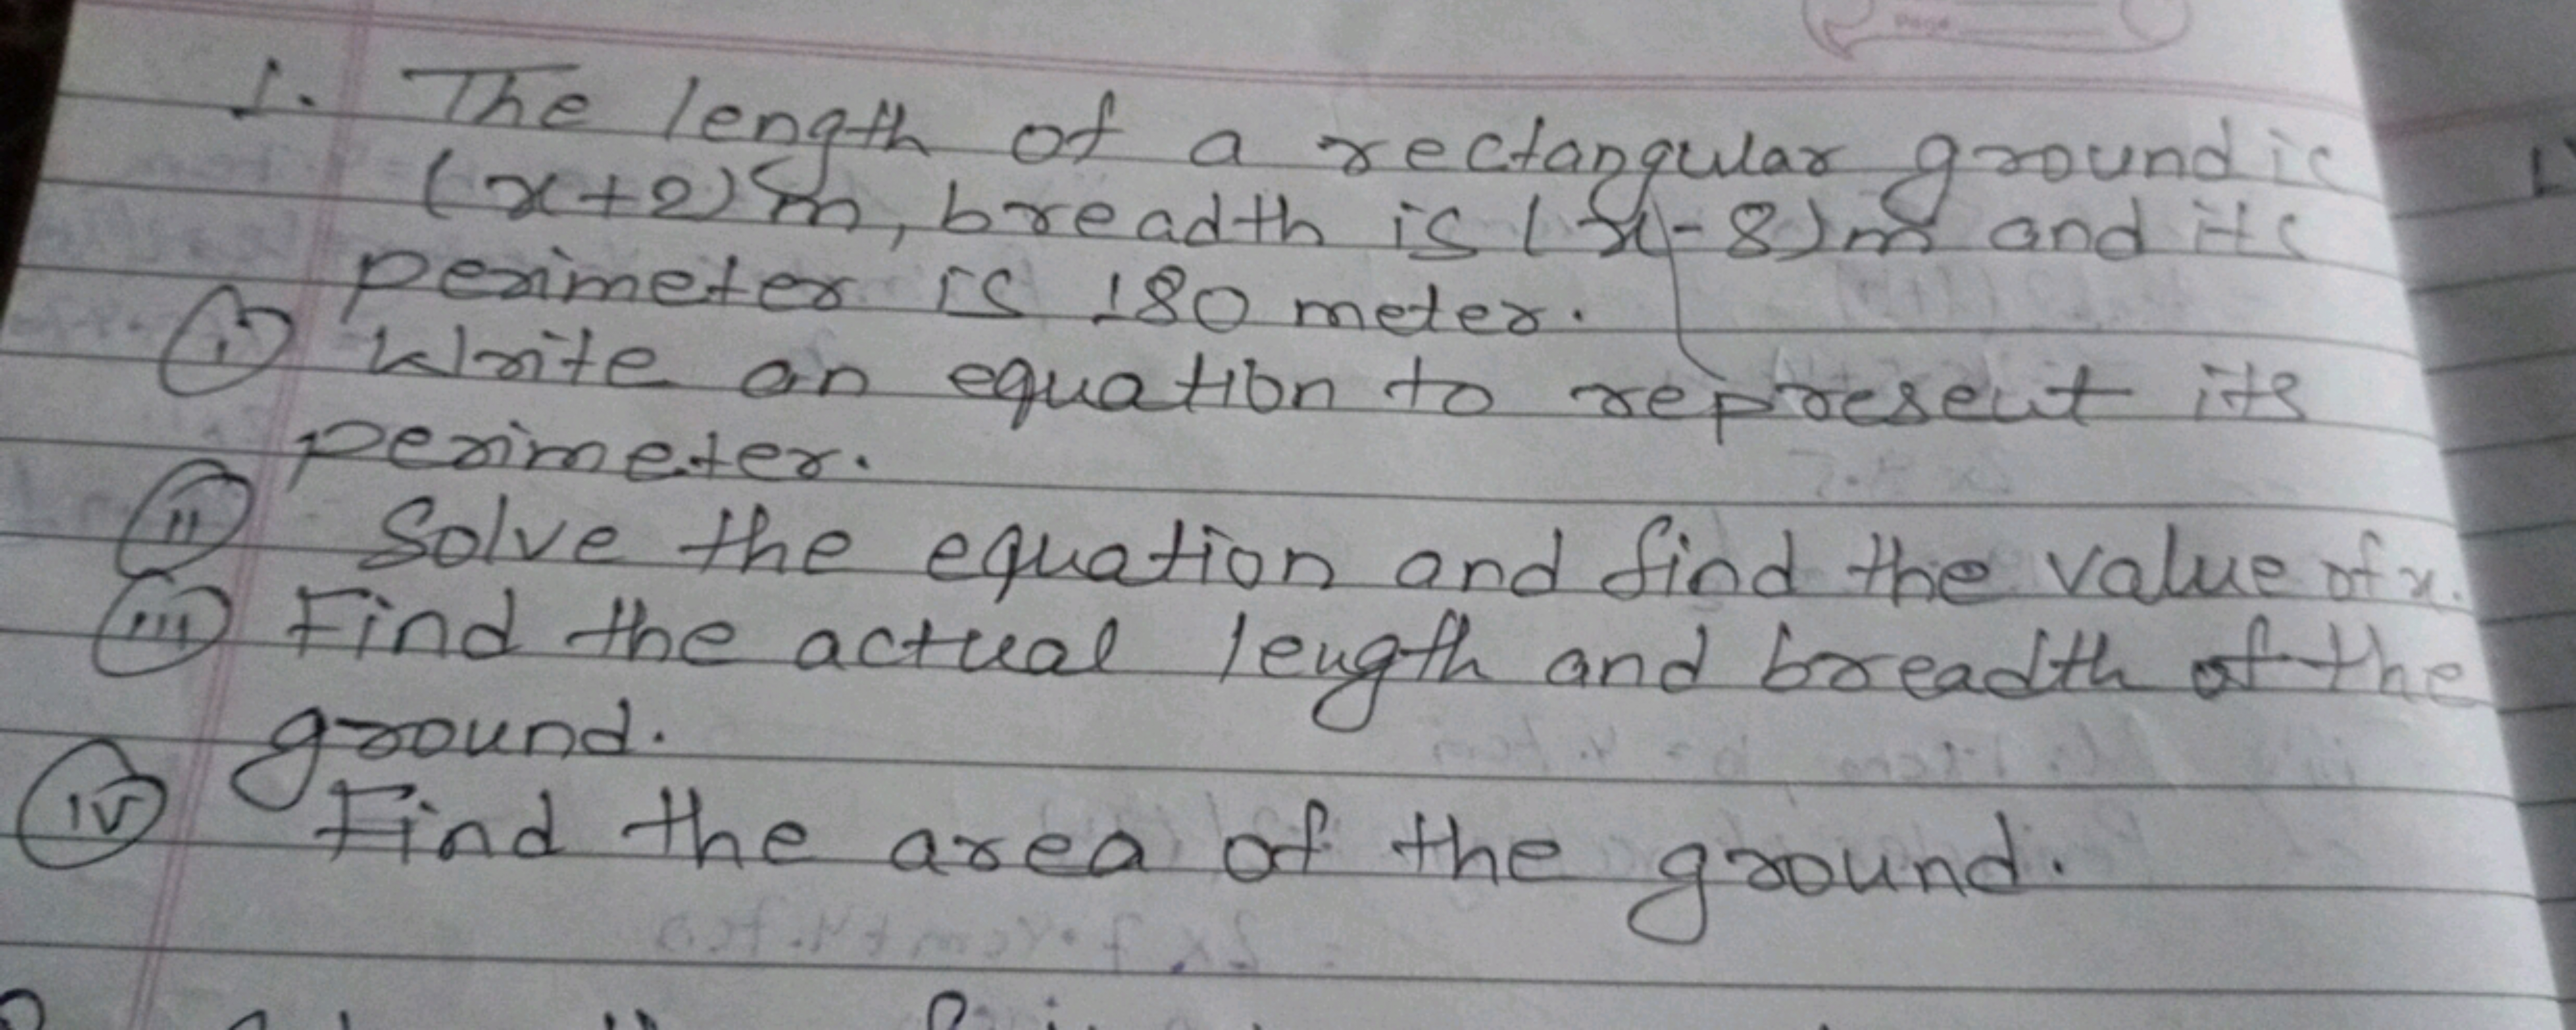 Page
1. The length of a rectangular ground is
(x+2) m, breadth is (x-8) m and its
perimeter is 180 meter.
(i) Write an equation to represent its
perimeter.
(ii) Solve the equation and find the value of x.
(iii) Find the actual length and breadth of the
ground.
(iv) Find the area of the ground.